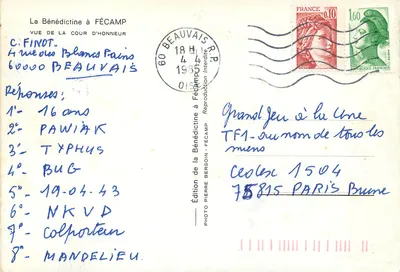 La Bénédictine à FÉCAMP
VUE DE LA COUR D'HONNEUR
C. FINOT.
4 rue des Blancs Pains
60000 BEAUVAIS
Réponses:
1°- 16 ans
2°- PAWIAK
3°- TYPHUS
4°- BUG
5°- 19-04-43
6°- NKVD
7°- Colporteur
8°- MANDELIEU.
Édition de la Bénédictine à Fécamp
Reproduction Interdite
PHOTO PIERRE BERDOIN - FÉCAMP
60 BEAUVAIS R.P.
18 H
4 - 4
OISE
FRANCE
0,10
1,60
Grand Jeu à la Une
TF1 - au nom de tous les
miens
Cedex 1504
75815 PARIS Brune